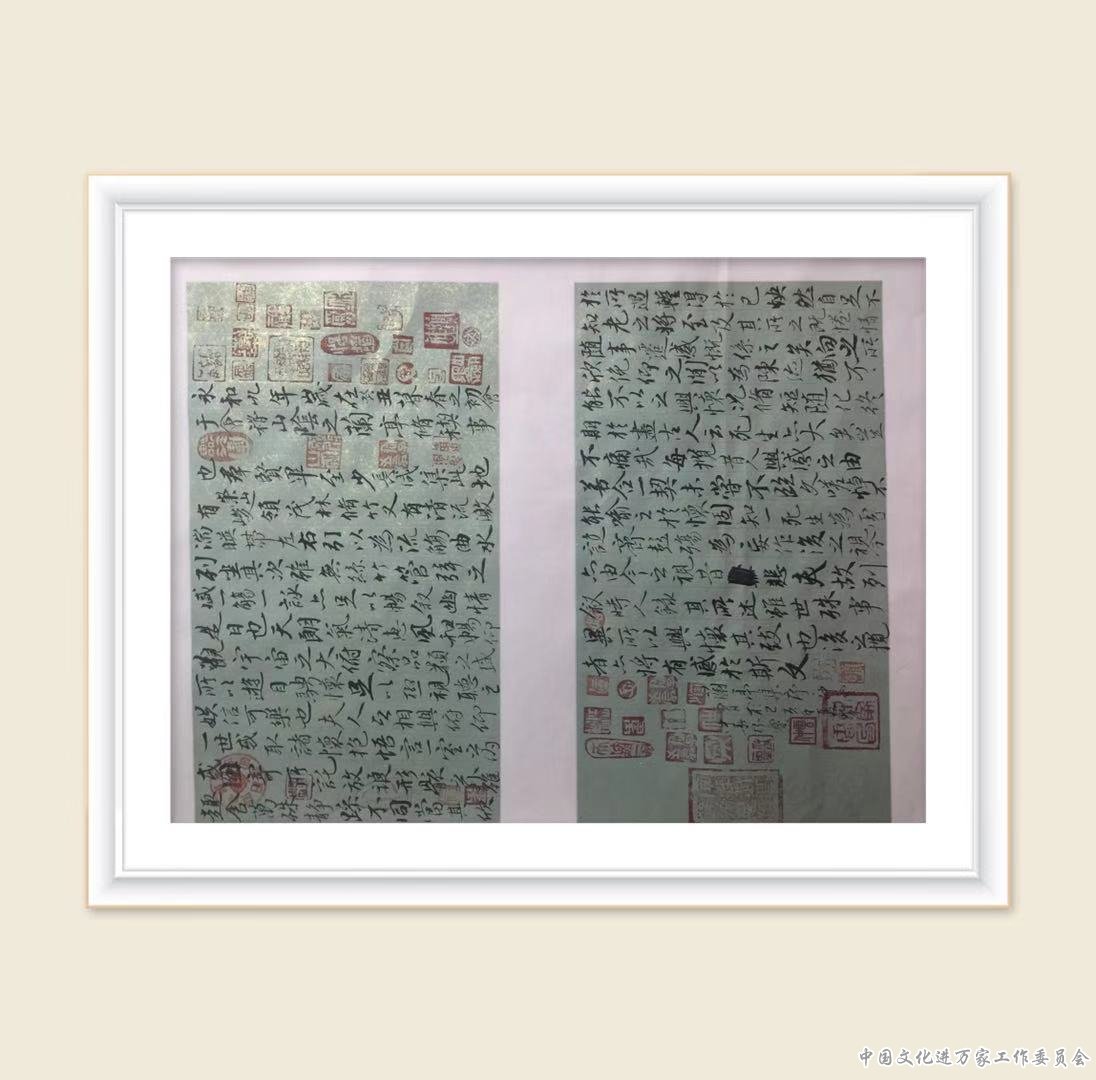 永和九年歲在癸丑暮春之初會
于會稽山陰之蘭亭脩禊事
也羣賢畢至少長咸集此地
有崇山峻領茂林脩竹又有清流激
湍暎帶左右引以為流觴曲水
列坐其次雖無絲竹管弦之
盛一觴一詠亦足以暢敘幽情
是日也天朗氣清惠風和暢仰
觀宇宙之大俯察品類之盛
所以遊目騁懷足以極視聽之
娛信可樂也夫人之相與俯仰
一世或取諸懷抱悟言一室之內
或因寄所託放浪形骸之外雖
趣舍萬殊靜躁不同當其欣
於所遇蹔得於己快然自足不
知老之將至及其所之既惓情
隨事遷感慨係之矣向之所
欣俛仰之閒以為陳迹猶不
能不以之興懷況脩短隨化終
期於盡古人云死生亦大矣豈
不痛哉每攬昔人興感之由
若合一契未嘗不臨文嗟悼不
能喻之於懷固知一死生為虛
誕齊彭殤為妄作後之視今
亦由今之視昔悲夫故列
敘時人錄其所述雖世殊事
異所以興懷其致一也後之攬
者亦將有感於斯文
中国文化进万家工作委员会